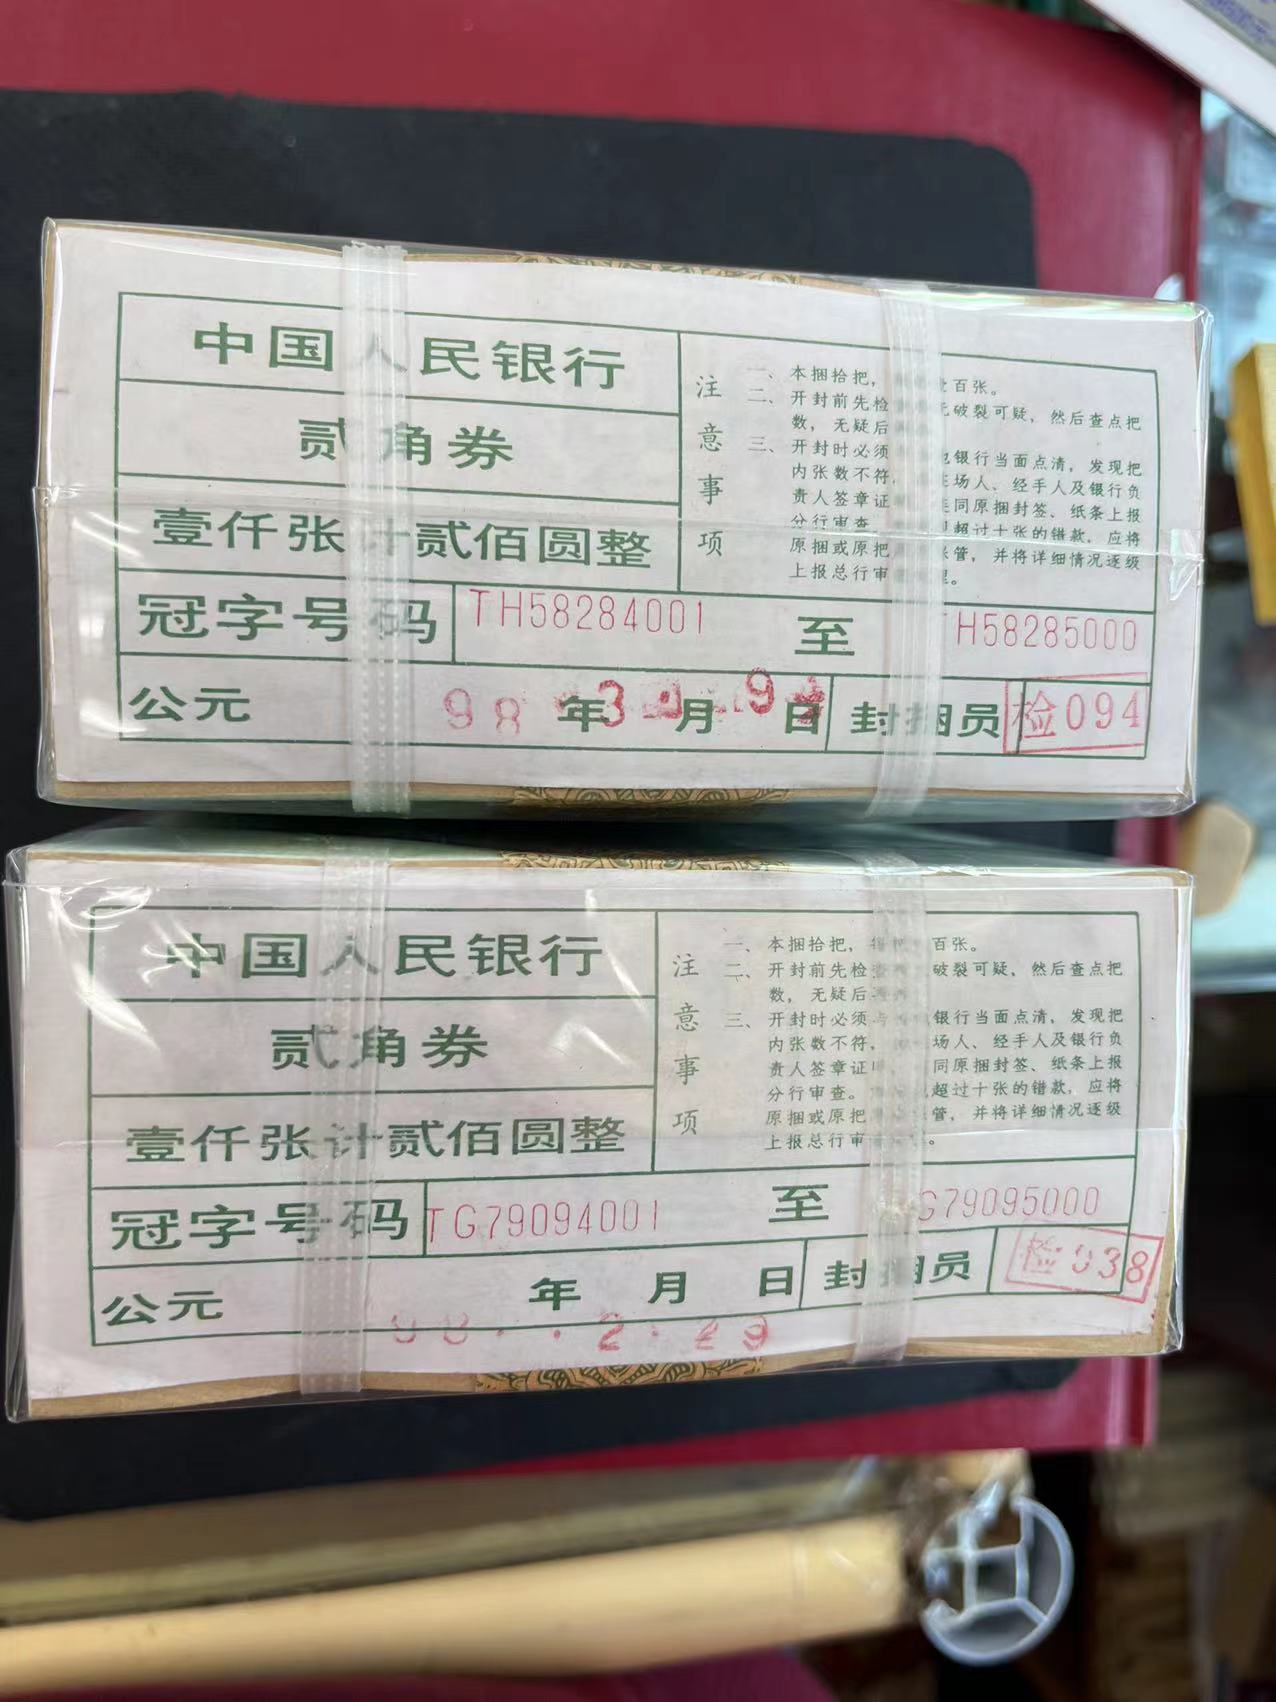 中国人民银行
贰角券
壹仟张计贰佰圆整
注意事项
一、本捆拾把, 百张。
二、开封前先检 破裂可疑, 然后查点把
数, 无疑后
三、开封时必须 银行当面点清, 发现把
内张数不符, 场人、经手人及银行负
责人签章证 同原捆封签、纸条上报
分行审查。 超过十张的错款, 应将
原捆或原把 管, 并将详细情况逐级
上报总行审
冠字号码 TH58284001 至 H58285000
公元 98 年 3 月 9 日 封捆员 检094
中国人民银行
贰角券
壹仟张计贰佰圆整
注意事项
一、本捆拾把, 百张。
二、开封前先检查 破裂可疑, 然后查点把
数, 无疑后
三、开封时必须 银行当面点清, 发现把
内张数不符, 场人、经手人及银行负
责人签章证 同原捆封签、纸条上报
分行审查。 超过十张的错款, 应将
原捆或原把 管, 并将详细情况逐级
上报总行审 。
冠字号码 TG79094001 至 G79095000
公元 年 月 日 封捆员 检038
2 29